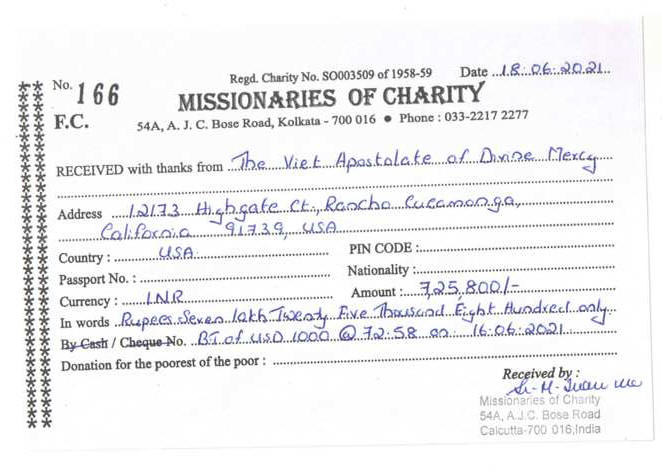 No. 166
Regd. Charity No. SO003509 of 1958-59 Date 18.06.2021
MISSIONARIES OF CHARITY
F.C.
54A, A. J. C. Bose Road, Kolkata - 700 016 ● Phone : 033-2217 2277
RECEIVED with thanks from The Viet Apostolate of Divine Mercy
Address 12173 Highgate Ct., Rancho Cucamonga,
California 91739, USA
Country : USA PIN CODE :
Passport No. : Nationality :
Currency : INR Amount : 7,25,800/-
In words Rupees Seven lakh Twenty Five Thousand Eight Hundred only
By Cash / Cheque No. BT of USD 1000 @ 72.58 on 16.06.2021
Donation for the poorest of the poor :
Received by :
Sr. M.
Missionaries of Charity
54A, A.J.C. Bose Road
Calcutta-700 016,India